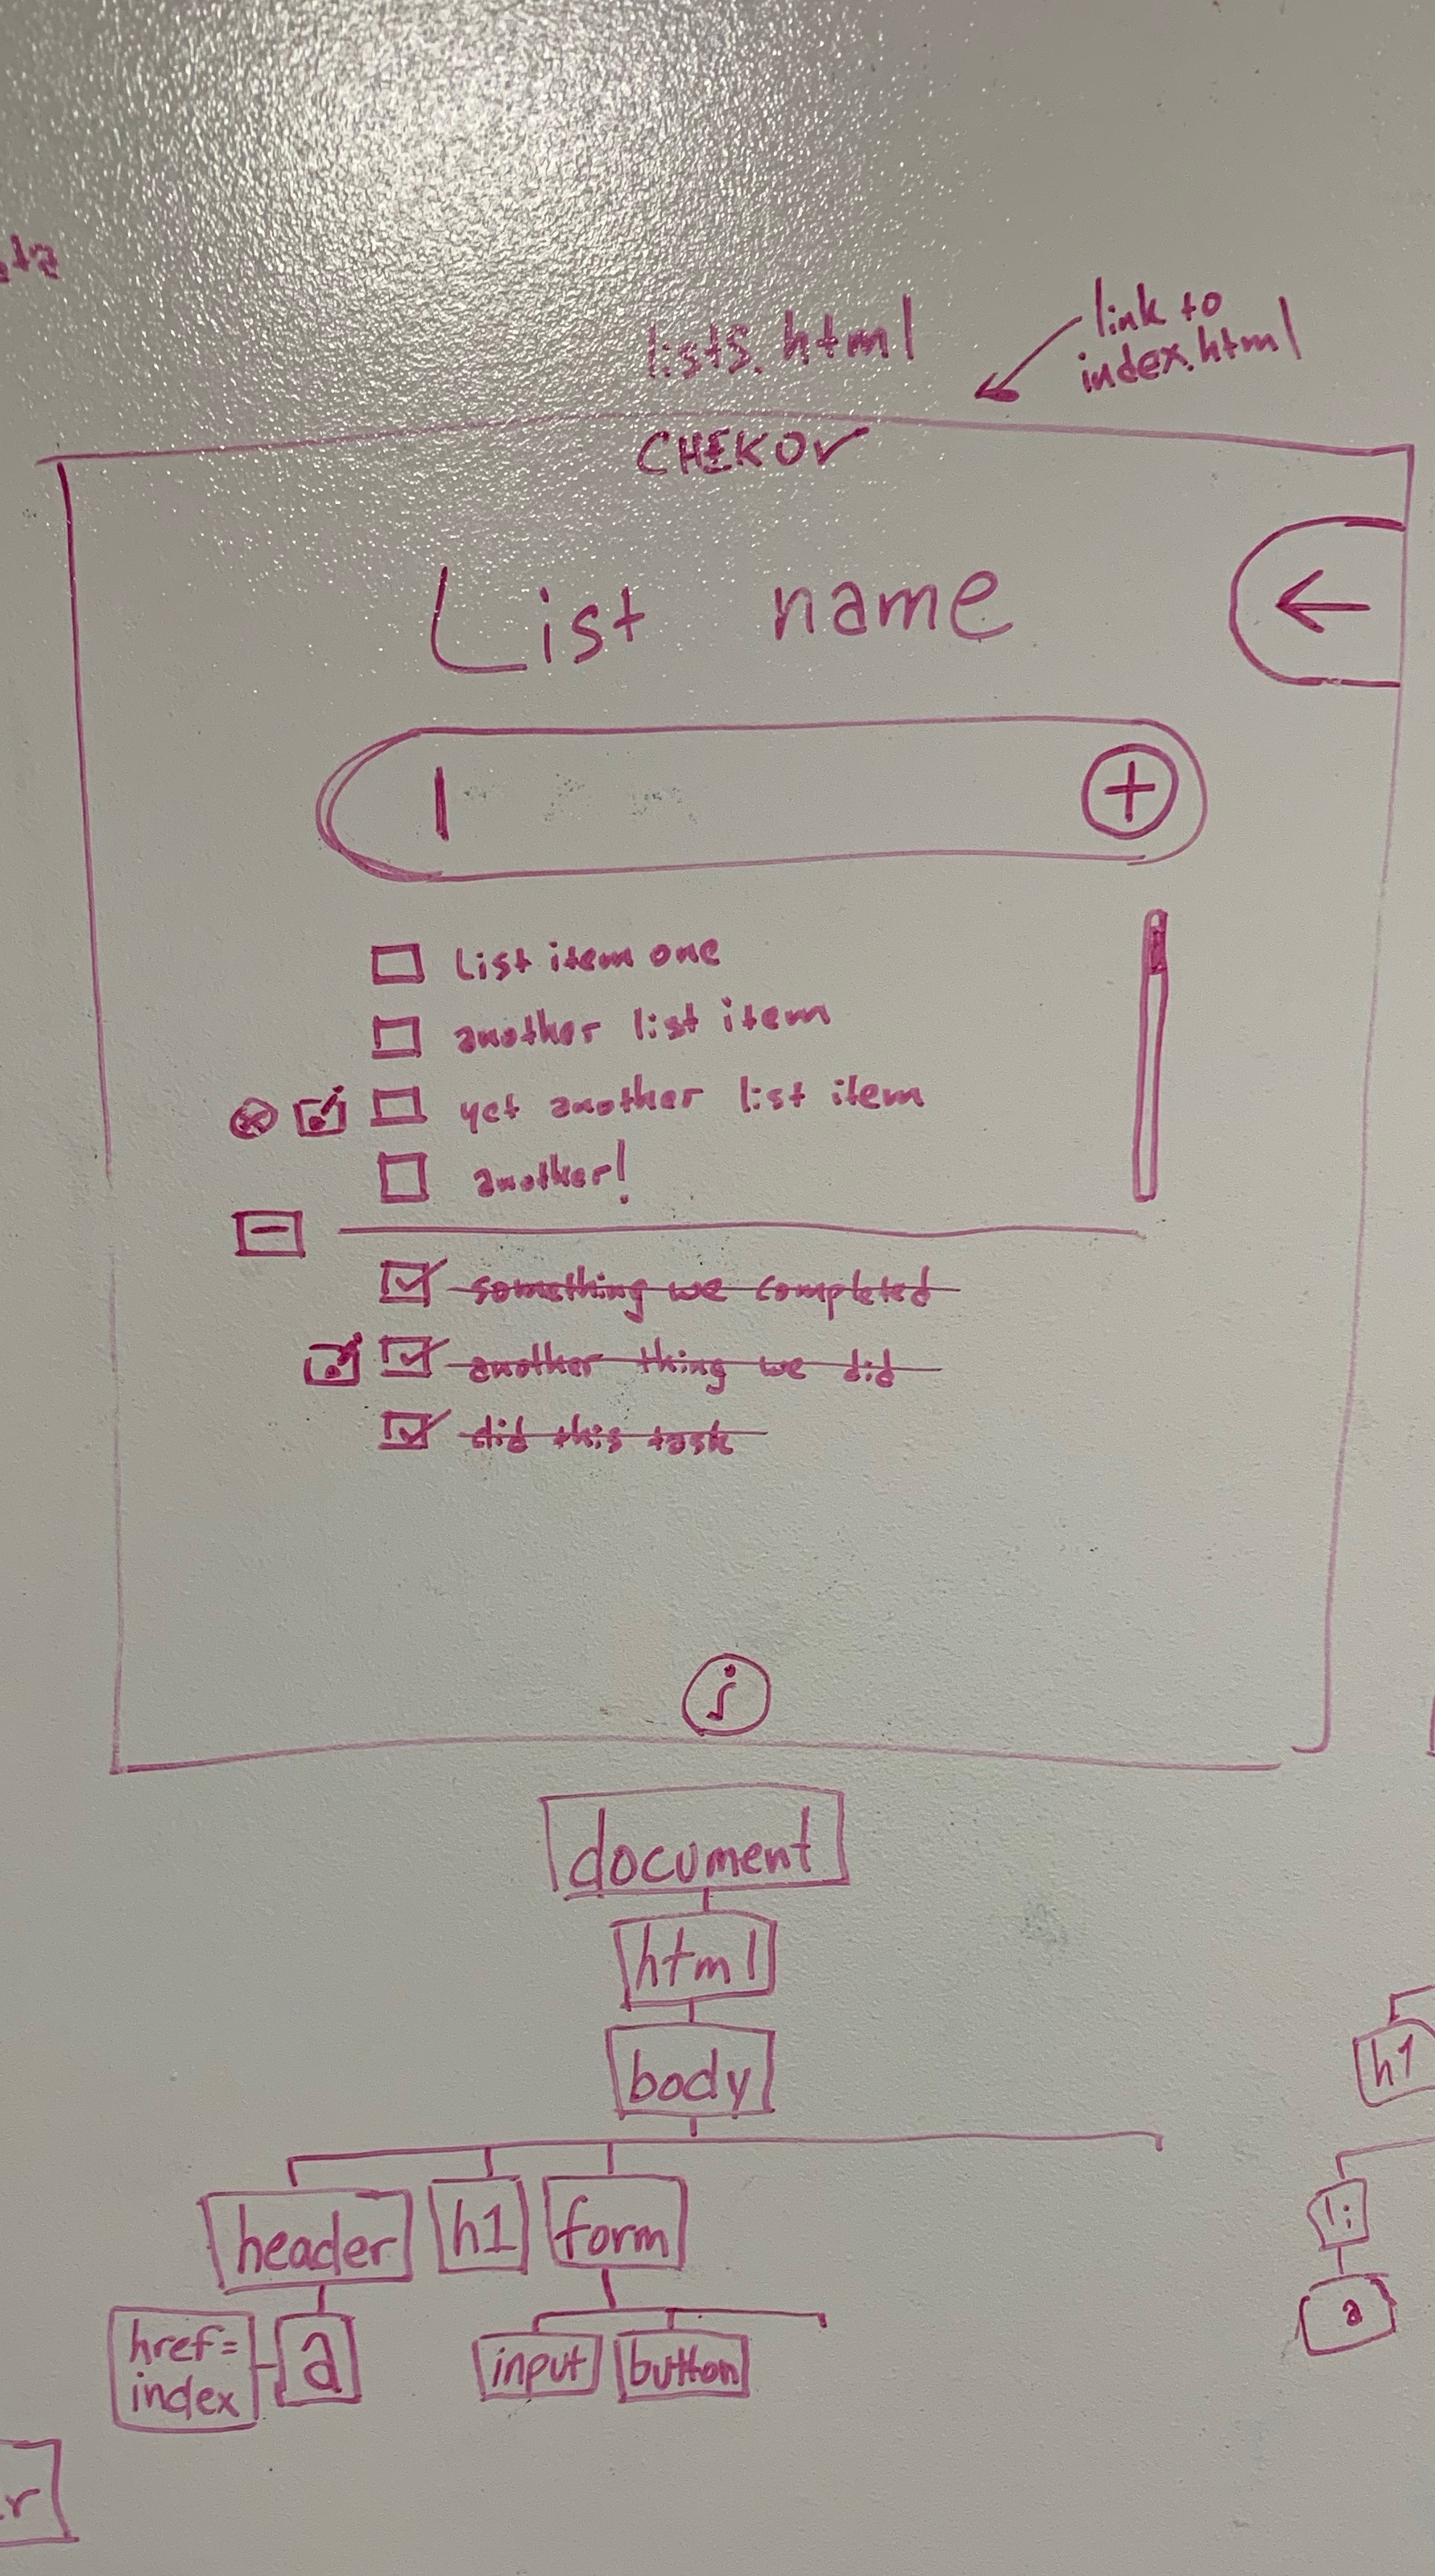 lists.html
link to
index.html
CHEKOV
List name
+
List item one
another list item
yet another list item
another!
something we completed
another thing we did
did this task
i
document
html
body
header h1 form
href=
index
a
input button
h1
li
a